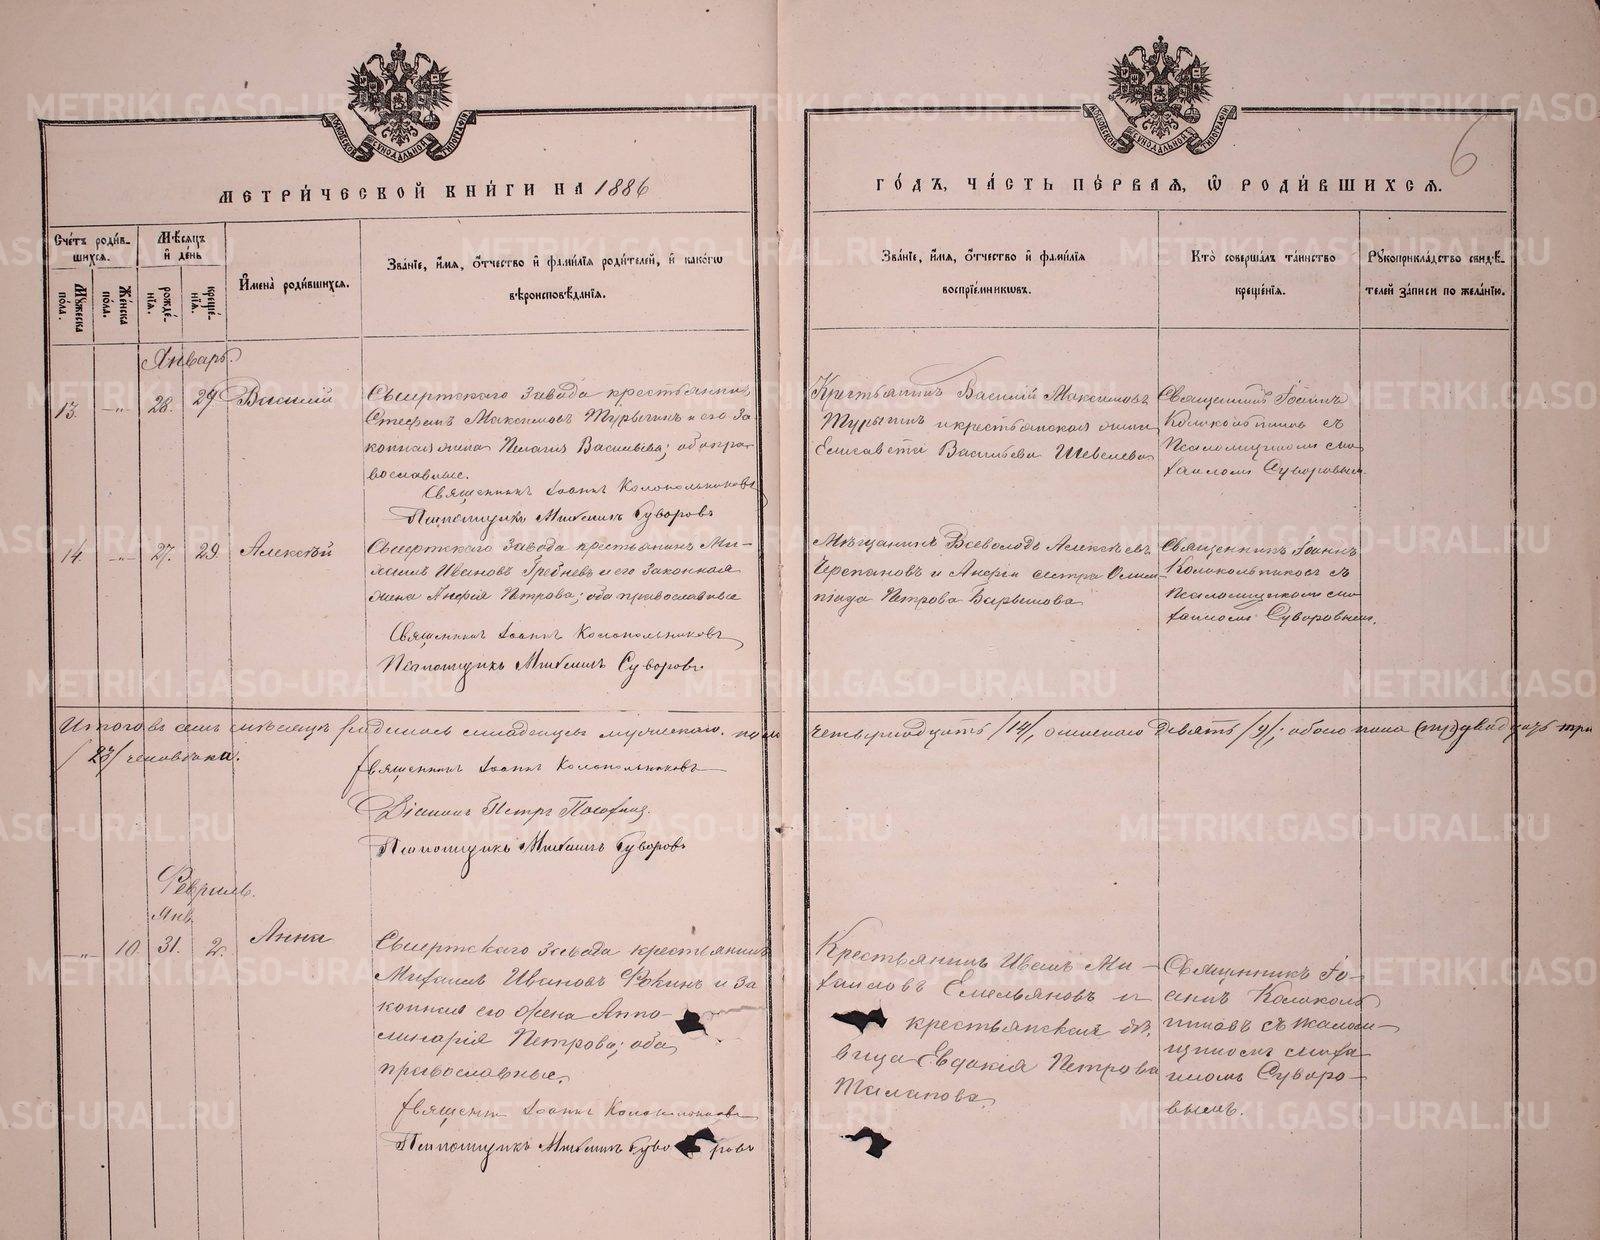 МЕТРИ́ЧЕСКОЙ КНИ́ГИ НА 1886
ГО́ДЪ, ЧА́СТЬ ПЕ́РВАѦ, Ѡ РОДИ́ВШИХСѦ.
6
Сче́тъ роди́в-
шихсѧ.
Мꙋ́жеска по́ла.
Же́нска по́ла.
Мѣ́сѧцъ
и де́нь
рожде́-
нїѧ.
креще́-
нїѧ.
И́мена̀ роди́вшихсѧ.
Зва́нїе, и́мѧ, о́тчество и фами́лїѧ роди́телей, и како́гѡ
вѣроисповѣ́данїѧ.
Зва́нїе, и́мѧ, о́тчество и фами́лїѧ
воспрїе́мникѡвъ.
Кто̀ соверша́лъ та́инство
креще́нїѧ.
Рꙋкоприкла́дство свидѣ́-
телей за́писи по жела́нїю.
Январь.
13. -„- 28. 29 Василій
Сысертскаго завода крестьянинъ
Стефанъ Максимовъ Турыгинъ и его за-
конная жена Пелагія Васильева; оба пра-
вославные.
Священникъ Іоаннъ Колокольниковъ
Псаломщикъ Михаилъ Суворовъ
Крестьянинъ Василій Максимовъ
Турыгинъ и крестьянская
Елисавета Васильева Шевелева
Священникъ Іоаннъ
Колокольниковъ съ
Псаломщикомъ Ми-
хаиломъ Суворовымъ
14. -„- 27. 29. Алексѣй
Сысертскаго завода крестьянинъ Ми-
хаилъ Ивановъ Гребневъ и его законная
жена Анфія Петрова; оба православные
Священникъ Іоаннъ Колокольниковъ
Псаломщикъ Михаилъ Суворовъ
Мѣщанинъ Всеволодъ Алексѣевъ
Черепановъ и сестра Олим-
піада Петрова
Священникъ Іоаннъ
Колокольниковъ съ
Псаломщикомъ Ми-
хаиломъ Суворовымъ.
Итого въ семъ мѣсяцѣ родилось младенцевъ мужескаго пола четырнадцать /14/, женскаго девять /9/; обоего пола двадцать три
/23/ человѣка.
Священникъ Іоаннъ Колокольниковъ
Діаконъ Петръ
Псаломщикъ Михаилъ Суворовъ
Февраль.
Янв.
-„- 10. 31. 2. Анна
Сысертскаго завода крестьянинъ
Михаилъ Ивановъ Фокинъ и за-
конная его жена Аппо-
линарія Петрова; оба
православные.
Священникъ Іоаннъ Колокольниковъ
Псаломщикъ Михаилъ Суворовъ
Крестьянинъ Иванъ Ми-
хаиловъ Емельяновъ и
крестьянская дѣ-
вица Евдокія Петрова
Талапова.
Священникъ Іо-
аннъ Колоколь-
никовъ съ Псалом-
щикомъ Миха-
иломъ Суворо-
вымъ.
METRIKI.GASO-URAL.RU